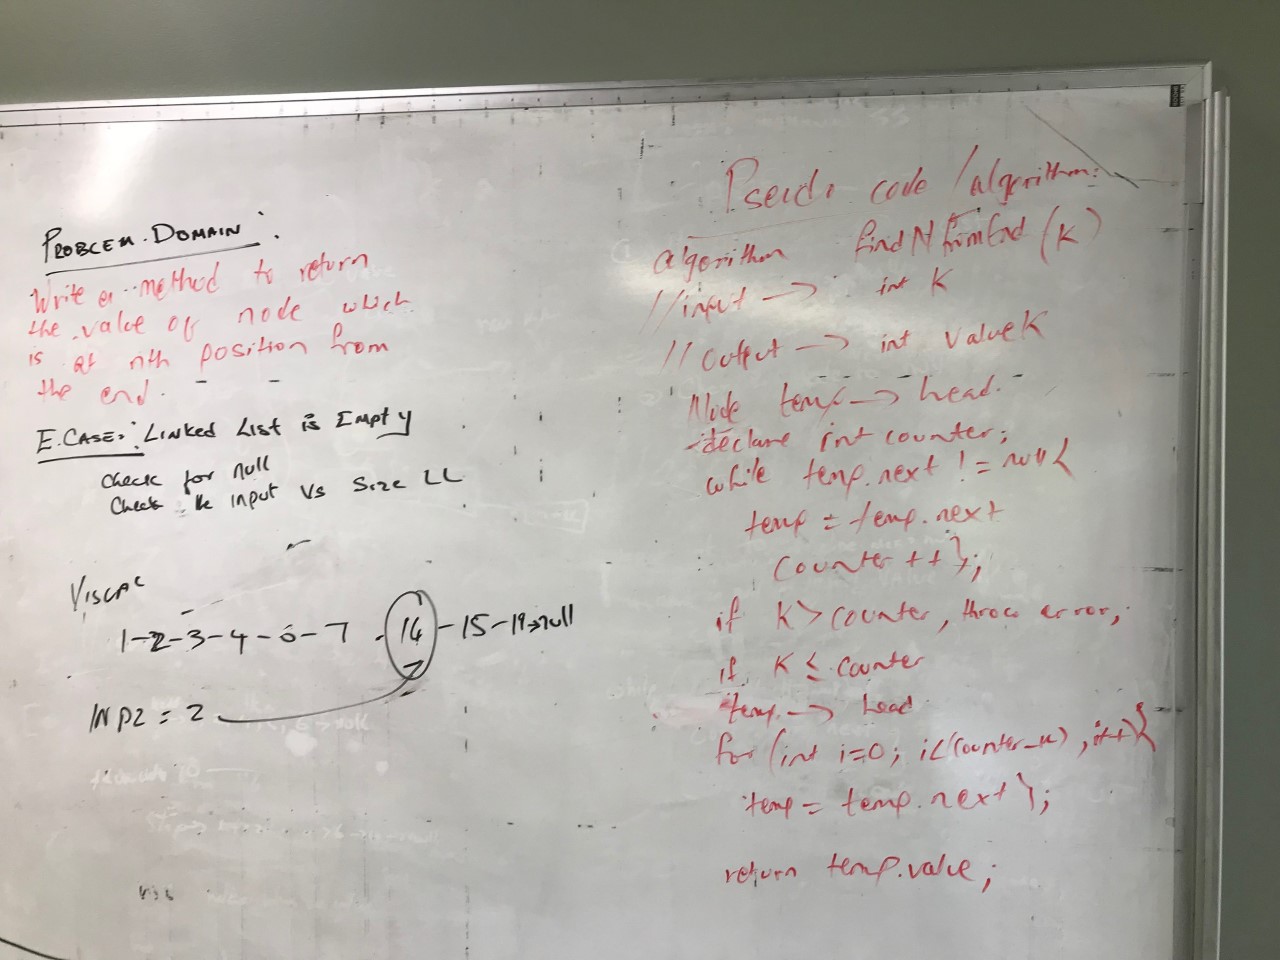 PROBLEM DOMAIN:
Write a method to return
the value of node which
is at nth position from
the end.
E.CASE: LINKED LIST is EMPTY
check for null
Check the input Vs Size LL
VISUAL
1-2-3-4-6-7-14-15-19→null
INP2 = 2
Pseudo code / algorithm:
algorithm findNfromEnd (K)
//input → int K
// output → int value K
Node temp → head.
declare int counter;
while temp.next != null {
temp = temp.next
Counter ++ };
if K > counter, throw error;
if K ≤ counter
temp → head
for (int i=0; i<(counter-k), i++){
temp = temp.next };
return temp.value;